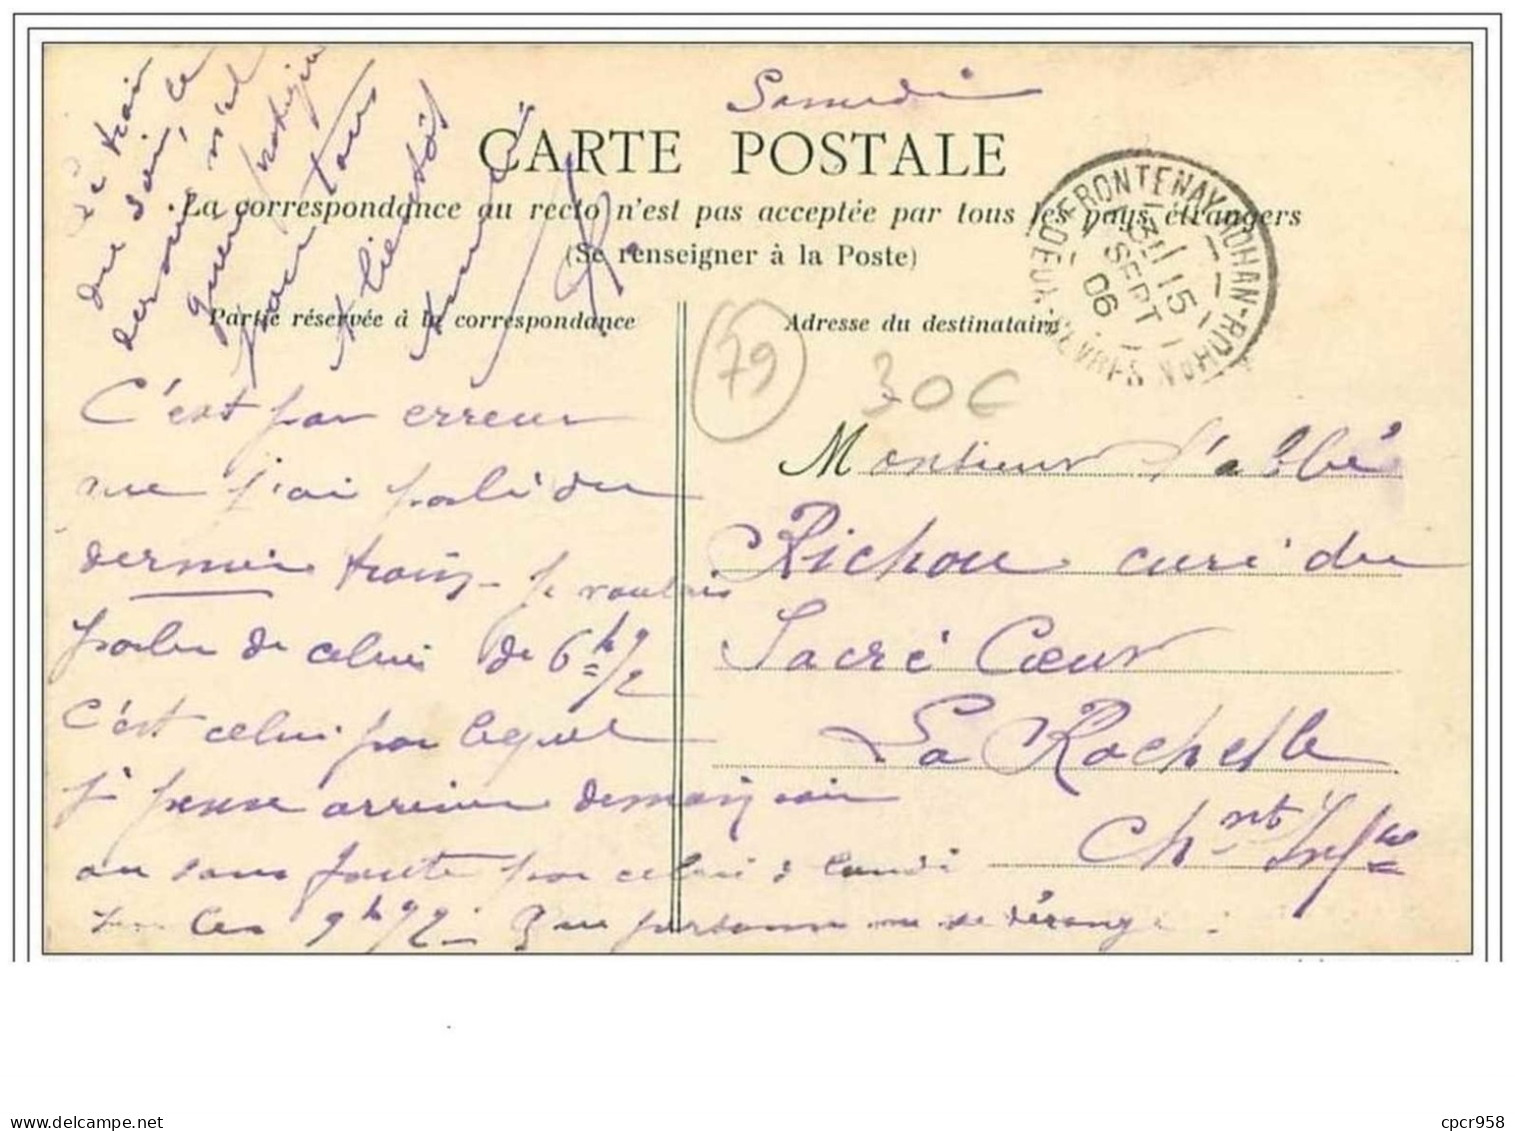 Samedi
CARTE POSTALE
La correspondance au recto n'est pas acceptée par tous les pays étrangers
(Se renseigner à la Poste)
Partie réservée à la correspondance
Adresse du destinataire
FRONTENAY-ROHAN-ROHAN
DEUX-SÈVRES
15
SEPT
06
79
30€
C'est par erreur
que j'ai parlé du
dernier train - je voulais
parler de celui de 6h 1/2
C'est celui par lequel
je pense arriver demain soir
ou sans faute par celui de lundi
vers les 9h 1/2 - Que personne ne se dérange.
Le train
du soir, le
dernier n'est
guère pratique
pour tous
A bientôt
Monsieur l'abbé
Richou curé du
Sacré Cœur
La Rochelle
Chnte Infre
delcampe.net
cpcr958